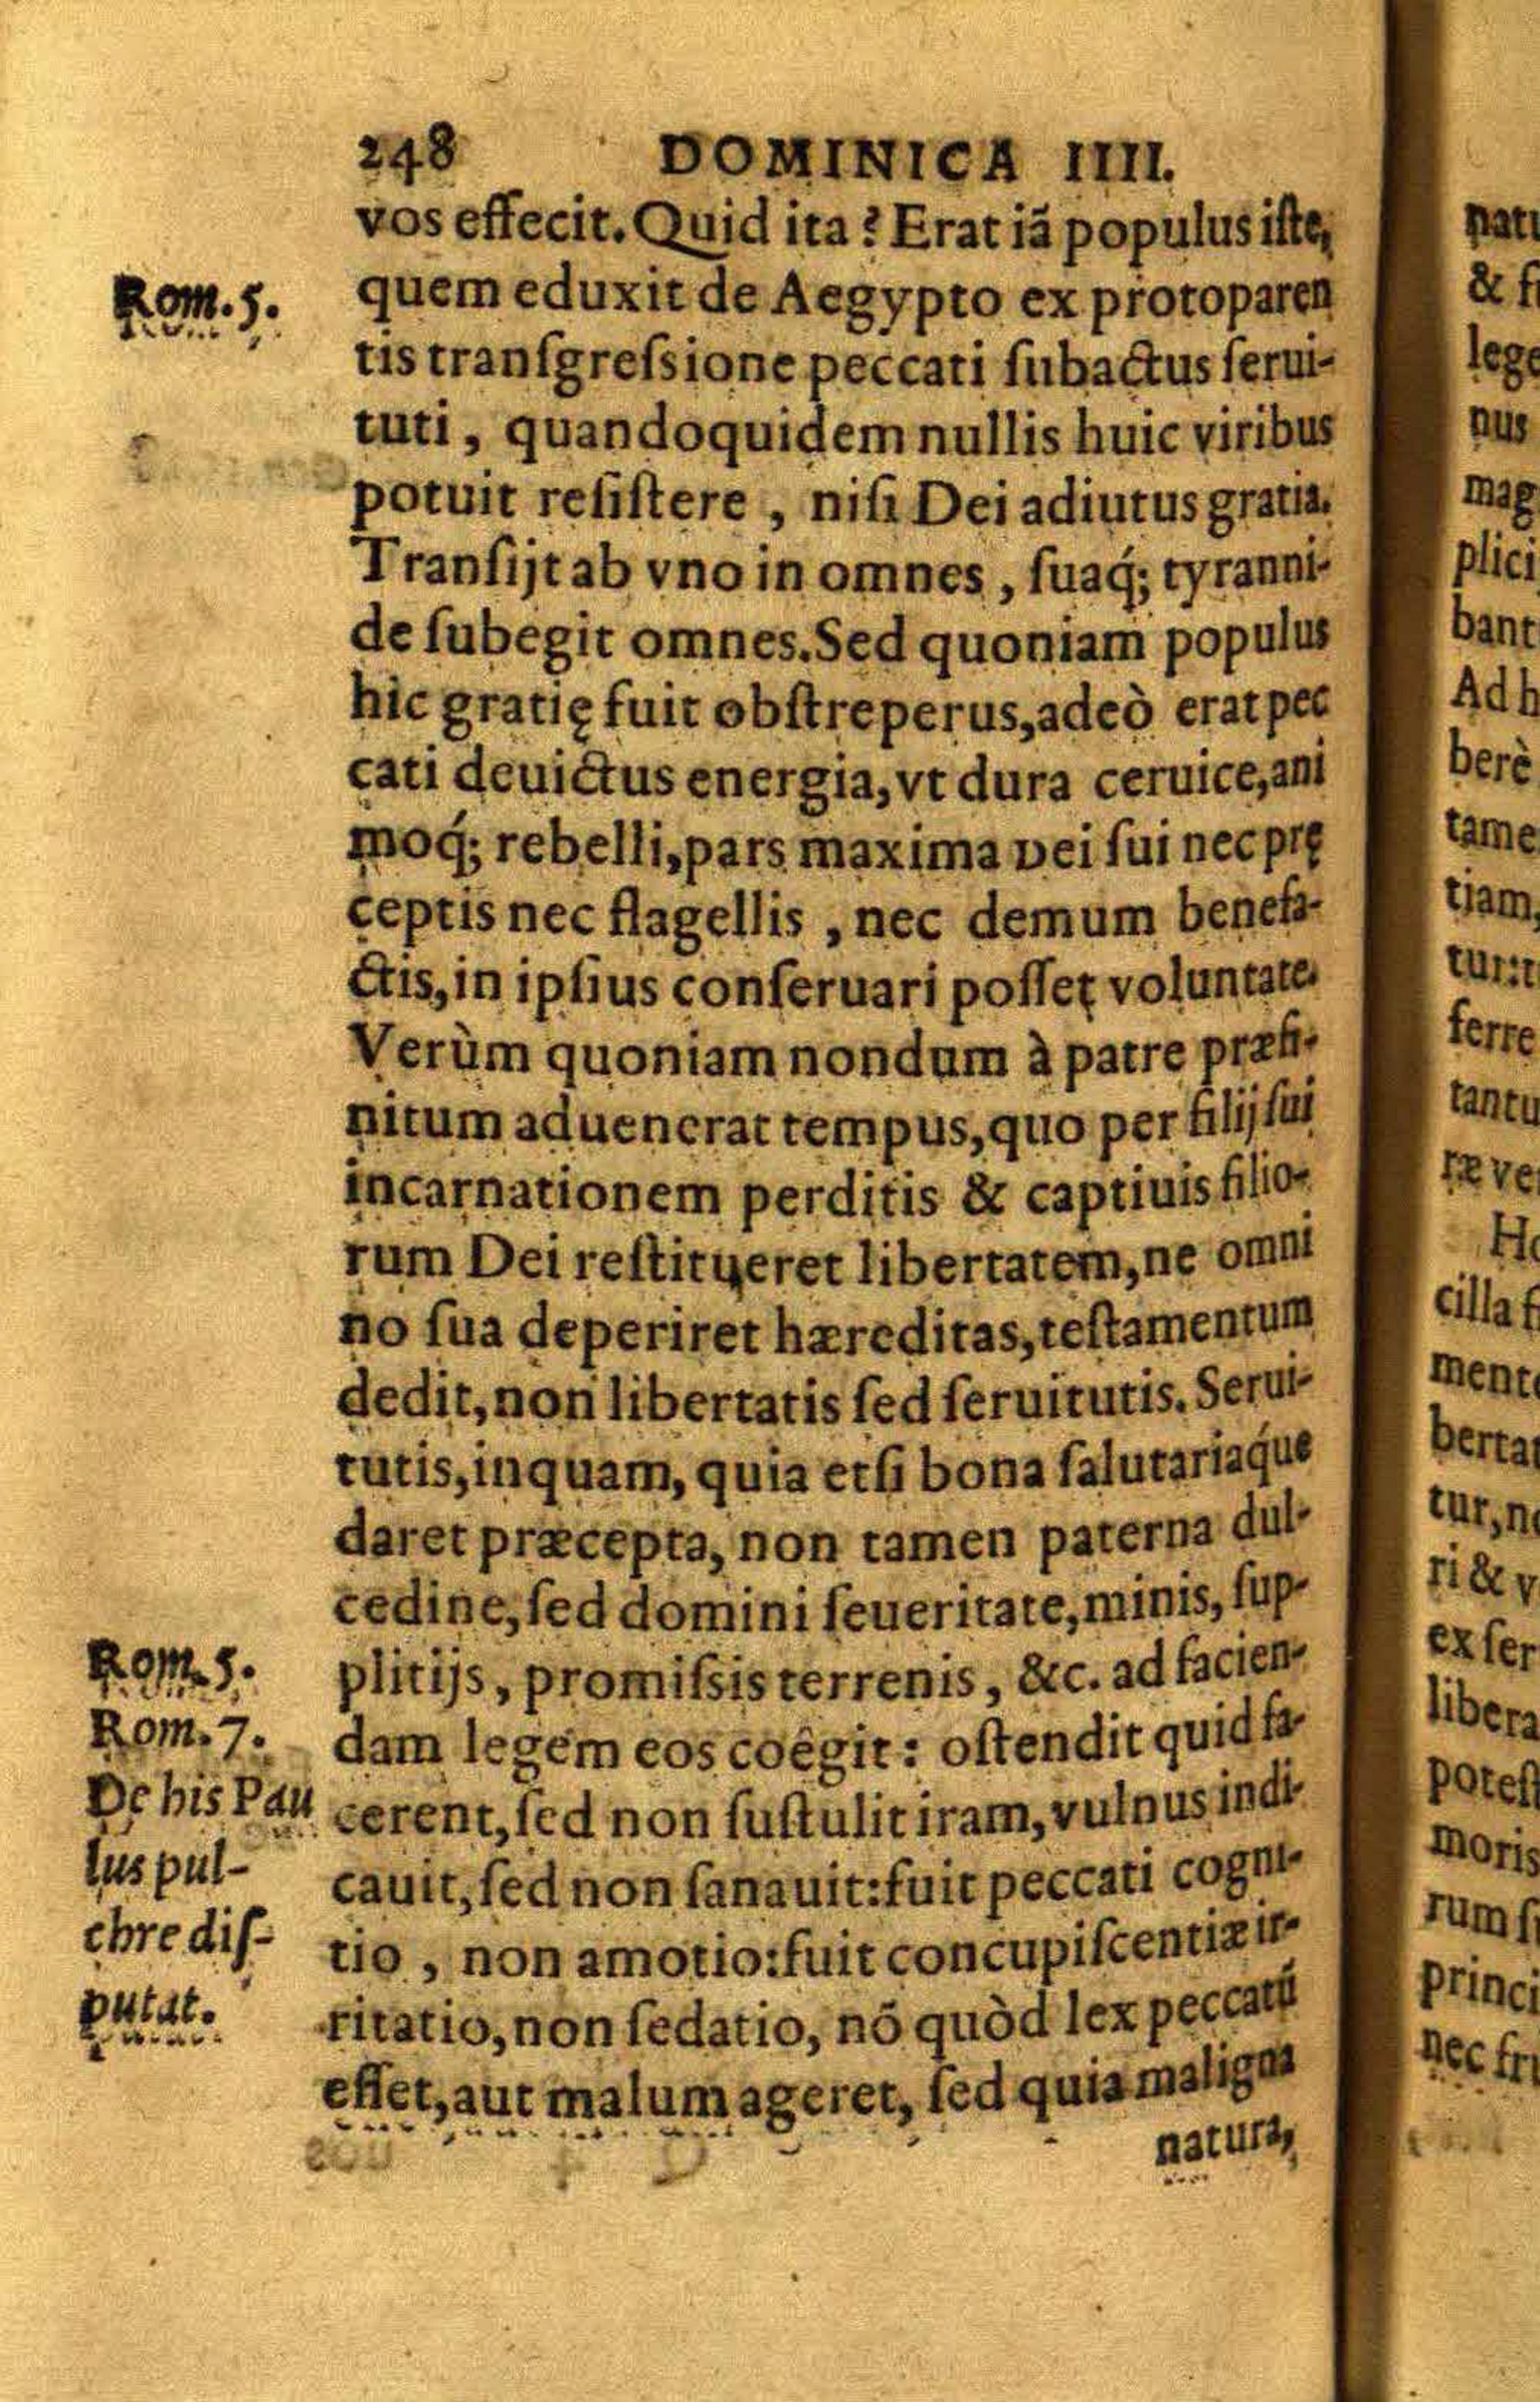 248 DOMINICA IIII.
vos effecit. Quid ita? Erat iã populus iſte,
Rom. 5.
quem eduxit de Aegypto ex protoparen
tis tranſgreſsione peccati ſubactus ſerui-
tuti, quandoquidem nullis huic viribus
potuit reſiſtere, niſi Dei adiutus gratia.
Tranſijt ab vno in omnes, ſuaq́; tyranni-
de ſubegit omnes. Sed quoniam populus
hic gratię fuit obſtreperus, adeò erat pec
cati deuictus energia, vt dura ceruice, ani
moq́; rebelli, pars maxima Dei ſui nec prę
ceptis nec flagellis, nec demum benefa-
ctis, in ipſius conſeruari poſſet voluntate.
Verùm quoniam nondum à patre præfi-
nitum aduenerat tempus, quo per filij ſui
incarnationem perditis & captiuis filio-
rum Dei reſtitueret libertatem, ne omni
no ſua deperiret hæreditas, teſtamentum
dedit, non libertatis ſed ſeruitutis. Serui-
tutis, inquam, quia etſi bona ſalutariaq́ue
daret præcepta, non tamen paterna dul-
cedine, ſed domini ſeueritate, minis, ſup-
plitijs, promiſsis terrenis, &c. ad facien-
dam legem eos coêgit: oſtendit quid fa-
cerent, ſed non ſuſtulit iram, vulnus indi-
cauit, ſed non ſanauit: fuit peccati cogni-
tio, non amotio: fuit concupiſcentiæ ir-
ritatio, non ſedatio, nõ quòd lex peccatũ
eſſet, aut malum ageret, ſed quia maligna
natura,
Rom. 5.
Rom. 7.
De his Pau
lus pul-
chre diſ-
putat.
natu
& ſi
lege
nus
mag
plici
bant
Ad h
berè
tame
tiam,
tur: t
ferre
tantu
ræ ve
Ho
cilla f
ment
berta
tur, n
ri & v
ex ſer
libera
poteſt
moris
rum ſ
princi
nec fr